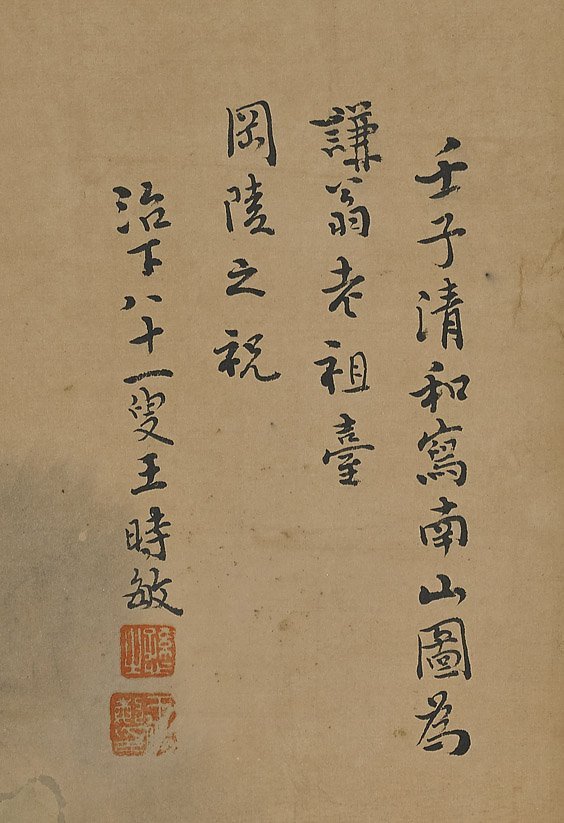 壬子清和寫南山圖為
謙翁老祖臺
岡陵之祝
治下八十一叟王時敏